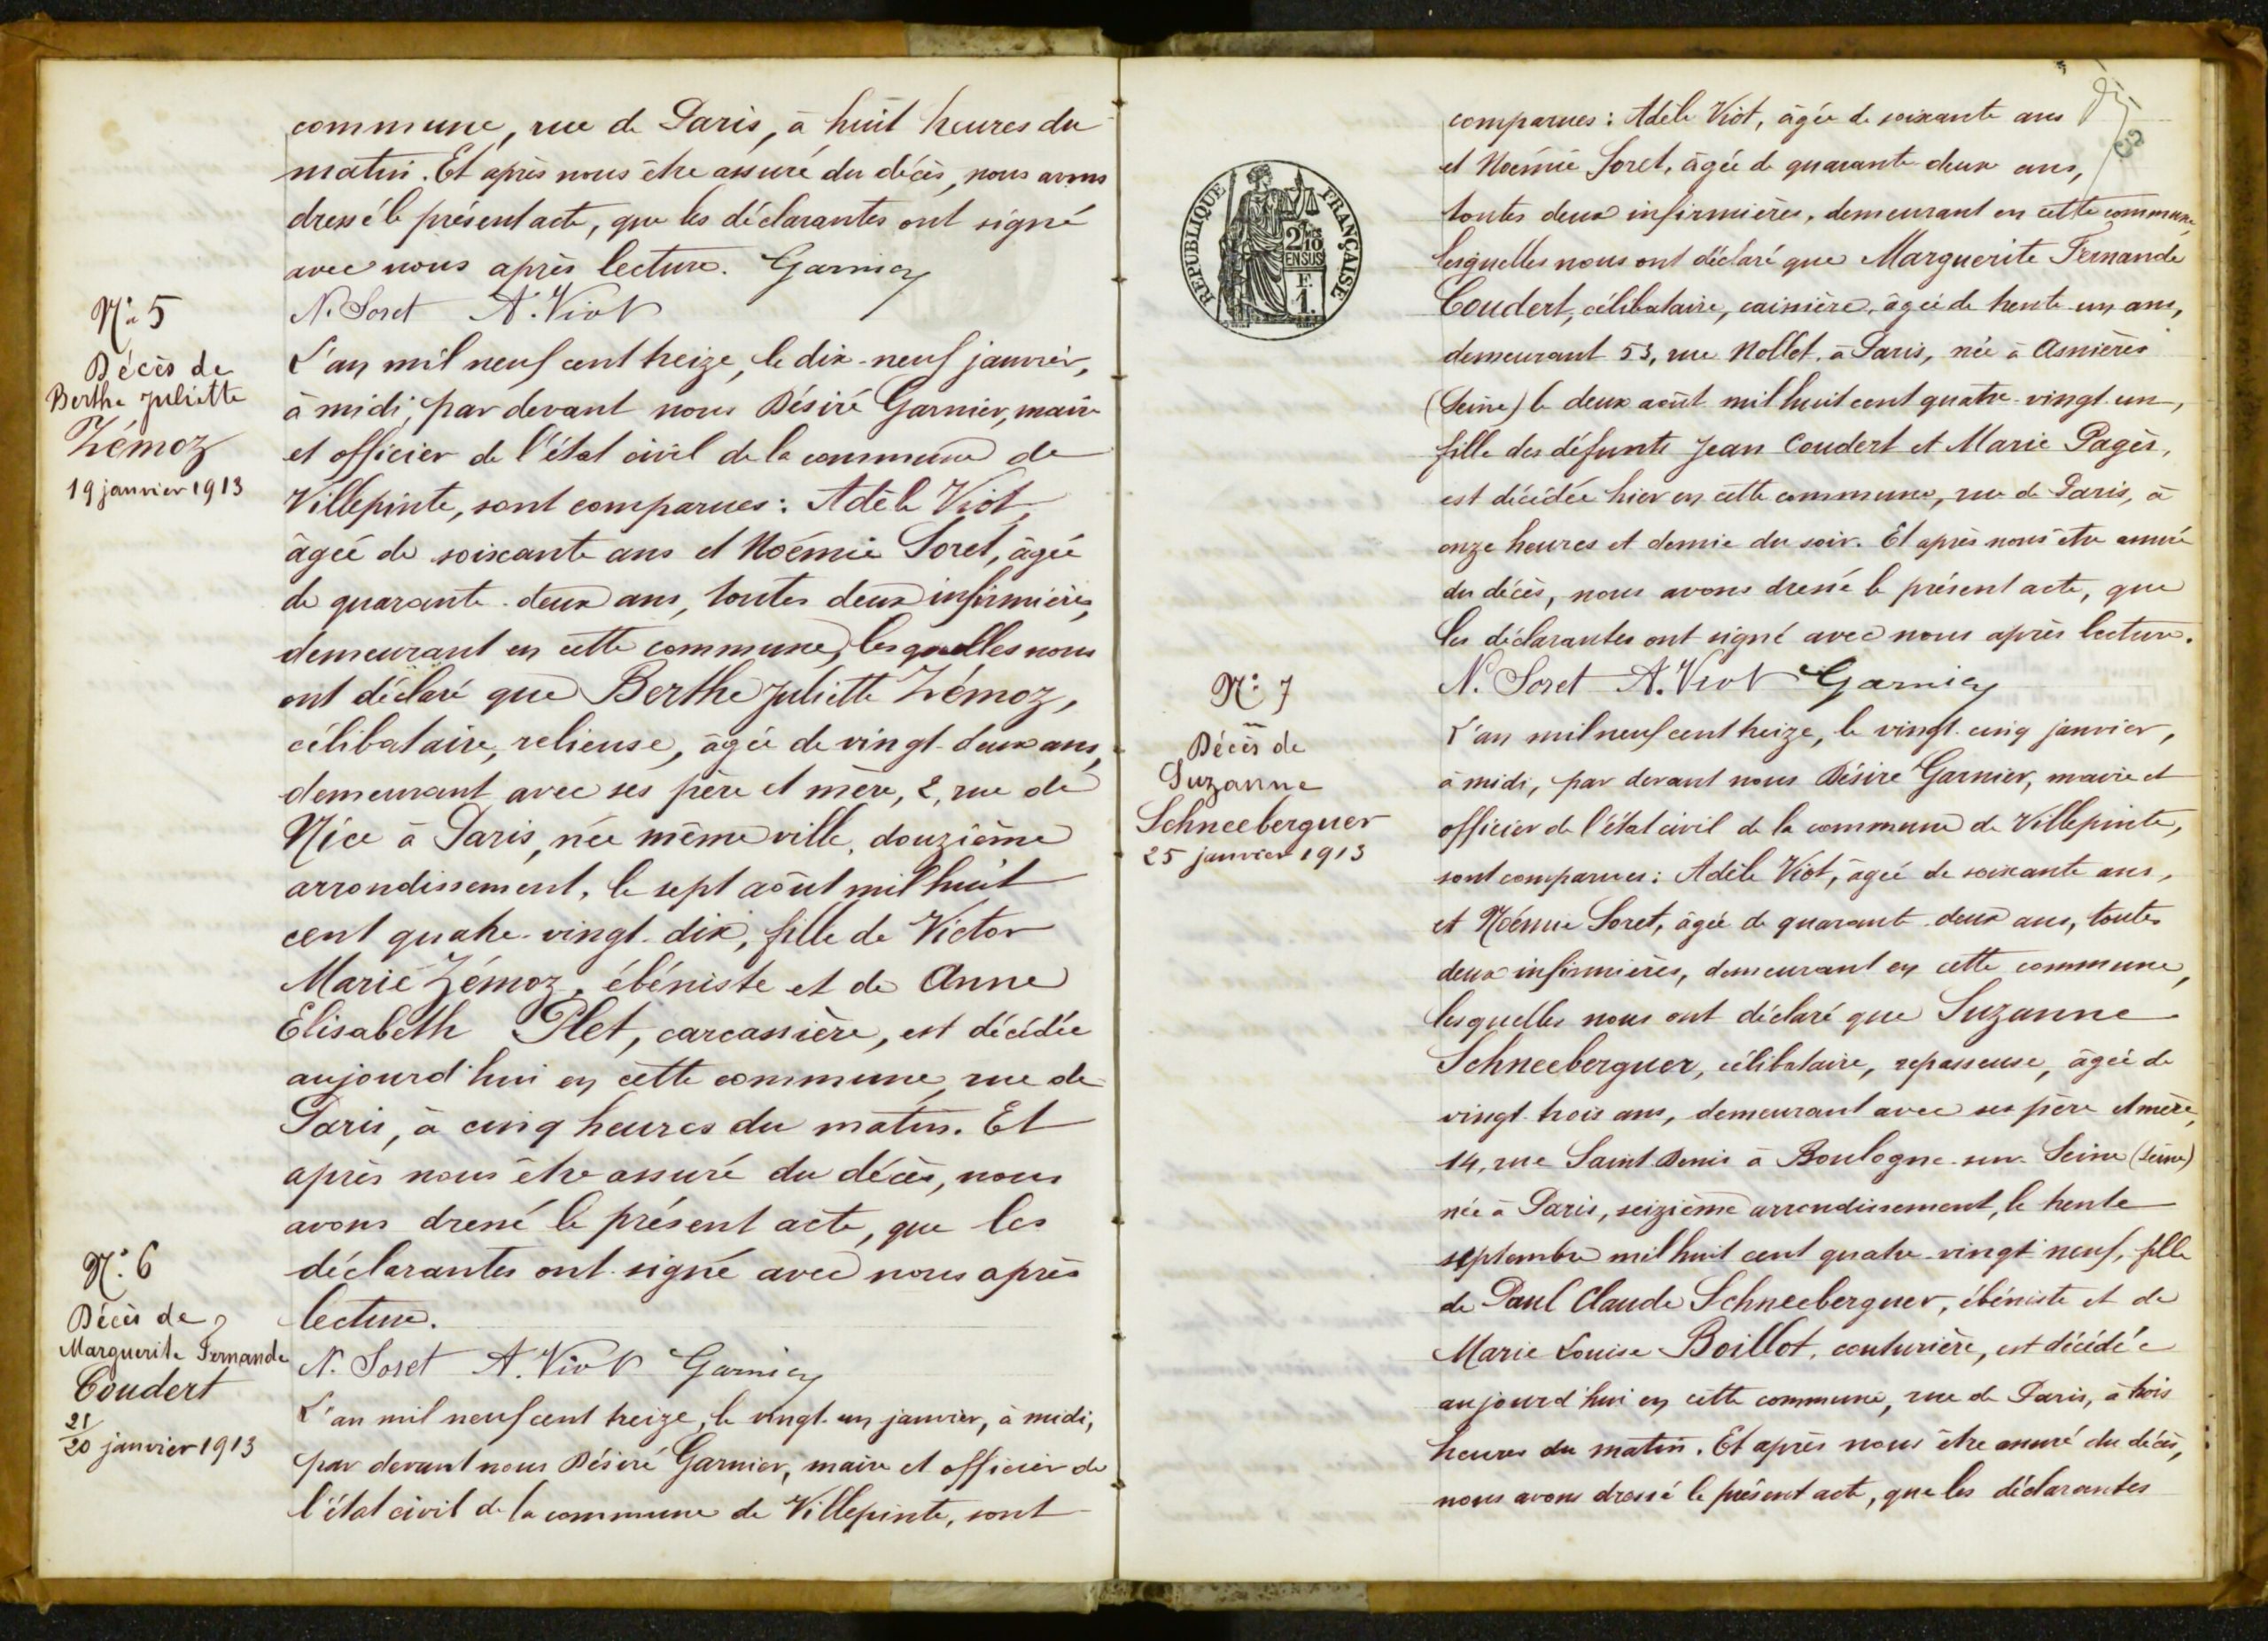 commune, rue de Paris, à huit heures du
matin. Et après nous être assuré du décès, nous avons
dressé le présent acte, que les déclarantes ont signé
avec nous après lecture. Garnier
N. Soret A. Viot
N° 5
Décès de
Berthe Juliette
Zémoz
19 janvier 1913
L'an mil neuf cent treize, le dix-neuf janvier,
à midi, par devant nous Désiré Garnier, maire
et officier de l'état civil de la commune de
Villepinte, sont comparues : Adèle Viot,
âgée de soixante ans et Noémie Soret, âgée
de quarante-deux ans, toutes deux infirmières,
demeurant en cette commune, lesquelles nous
ont déclaré que Berthe Juliette Zémoz,
célibataire, relieuse, âgée de vingt-deux ans,
demeurant avec ses père et mère, 2, rue de
Nice à Paris, née même ville, douzième
arrondissement, le sept août mil huit
cent quatre-vingt-dix, fille de Victor
Marie Zémoz, ébéniste et de Anne
Elisabeth Plet, carcassière, est décédée
aujourd'hui en cette commune, rue de
Paris, à cinq heures du matin. Et
après nous être assuré du décès, nous
avons dressé le présent acte, que les
déclarantes ont signé avec nous après
lecture.
N. Soret A. Viot Garnier
N° 6
Décès de
Marguerite Fernande
Coudert
21/20 janvier 1913
L'an mil neuf cent treize, le vingt-un janvier, à midi,
par devant nous Désiré Garnier, maire et officier de
l'état civil de la commune de Villepinte, sont
REPUBLIQUE FRANÇAISE
2/10
EN SUS
F.
1.
comparues : Adèle Viot, âgée de soixante ans
et Noémie Soret, âgée de quarante-deux ans,
toutes deux infirmières, demeurant en cette commune,
lesquelles nous ont déclaré que Marguerite Fernande
Coudert, célibataire, caissière, âgée de trente-un ans,
demeurant 53, rue Nollet, à Paris, née à Asnières
(Seine) le deux août mil huit cent quatre-vingt-un,
fille des défunts Jean Coudert et Marie Pagès,
est décédée hier en cette commune, rue de Paris, à
onze heures et demie du soir. Et après nous être assuré
du décès, nous avons dressé le présent acte, que
les déclarantes ont signé avec nous après lecture.
N. Soret A. Viot Garnier
N° 7
Décès de
Suzanne
Schneeberguer
25 janvier 1913
L'an mil neuf cent treize, le vingt-cinq janvier,
à midi, par devant nous Désiré Garnier, maire et
officier de l'état civil de la commune de Villepinte,
sont comparues : Adèle Viot, âgée de soixante ans,
et Noémie Soret, âgée de quarante-deux ans, toutes
deux infirmières, demeurant en cette commune,
lesquelles nous ont déclaré que Suzanne
Schneeberguer, célibataire, repasseuse, âgée de
vingt-trois ans, demeurant avec ses père et mère,
14, rue Saint-Denis à Boulogne-sur-Seine (Seine)
née à Paris, seizième arrondissement, le trente
septembre mil huit cent quatre-vingt neuf, fille
de Paul Claude Schneeberguer, ébéniste et de
Marie Louise Boillot, couturière, est décédée
aujourd'hui en cette commune, rue de Paris, à trois
heures du matin. Et après nous être assuré du décès,
nous avons dressé le présent acte, que les déclarantes